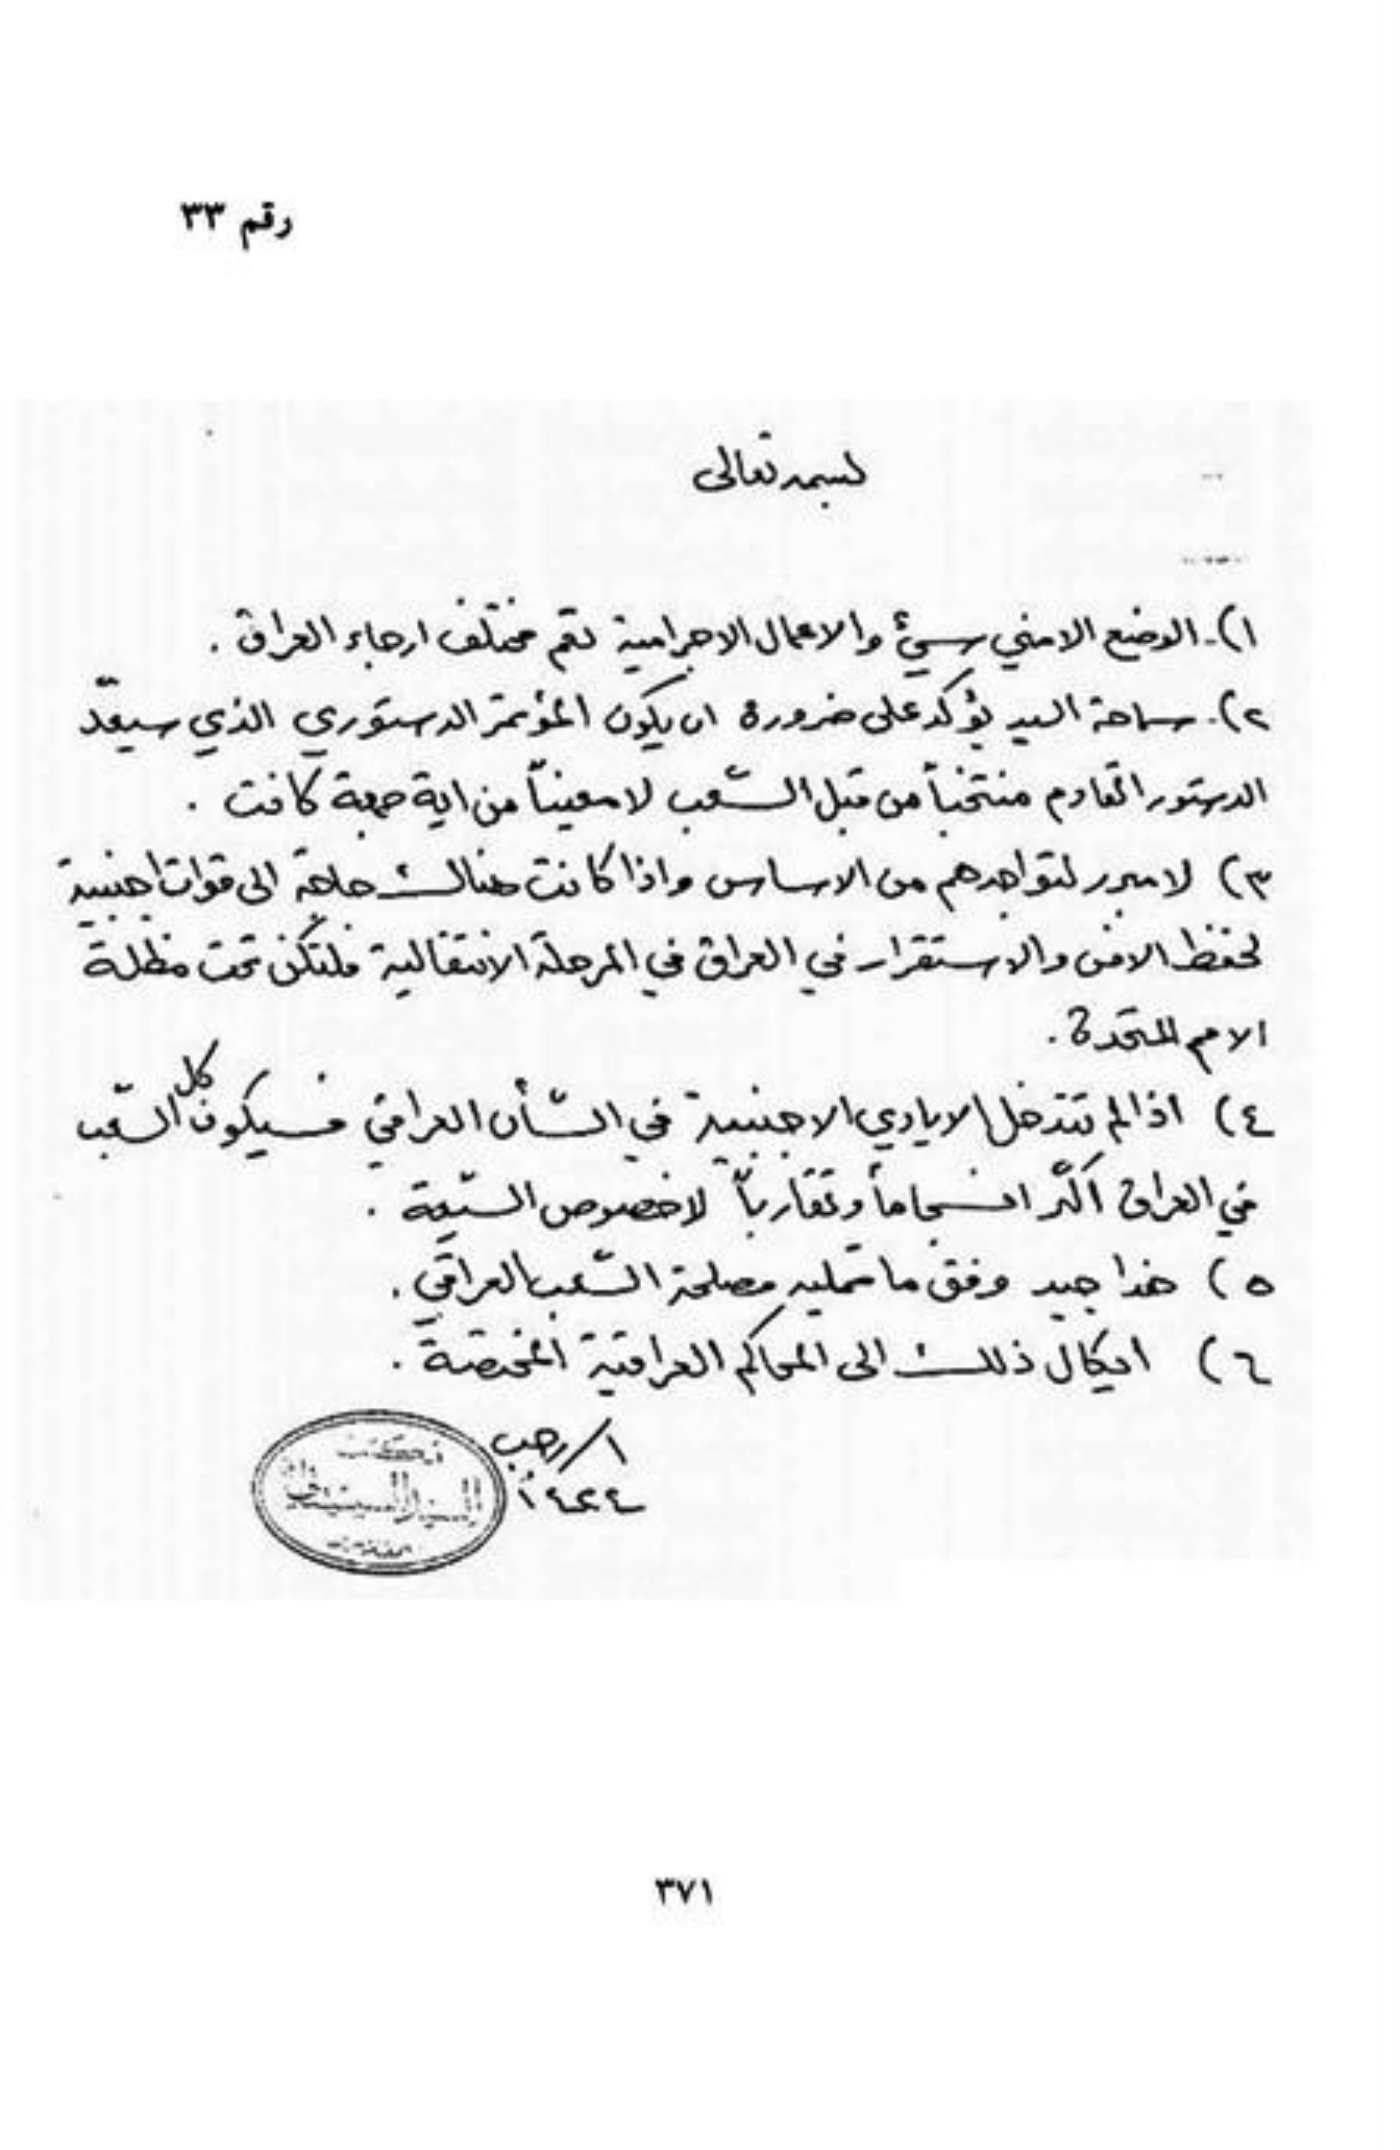 رقم ٣٣
بسمه تعالى
١)- الوضع الامني سيئ والاعمال الاجرامية تعم مختلف ارجاء العراق .
٢)- سماحة السيد يؤكد على ضرورة ان يكون المؤتمر الدستوري الذي سيعدّ
الدستور القادم منتخباً من قبل الشعب لا معيناً من اية جهة كانت .
٣) لا مبرر لتواجدهم من الاساس واذا كانت هنالك حاجة الى قوات اجنبية
لحفظ الامن والاستقرار في العراق في المرحلة الانتقالية فلتكن تحت مظلة
الامم المتحدة .
٤) اذا لم تتدخل الايادي الاجنبية في الشأن العراقي فسيكون كل الشعب
في العراق اكثر انسجاماً وتقارباً لا خصوص الشيعة .
٥) هذا جيد وفق ما تمليه مصلحة الشعب العراقي .
٦) ايكال ذلك الى المحاكم العراقية المختصة .
١/رجب
١٤٢٤
مكتب
السيد السيستاني
٣٧١